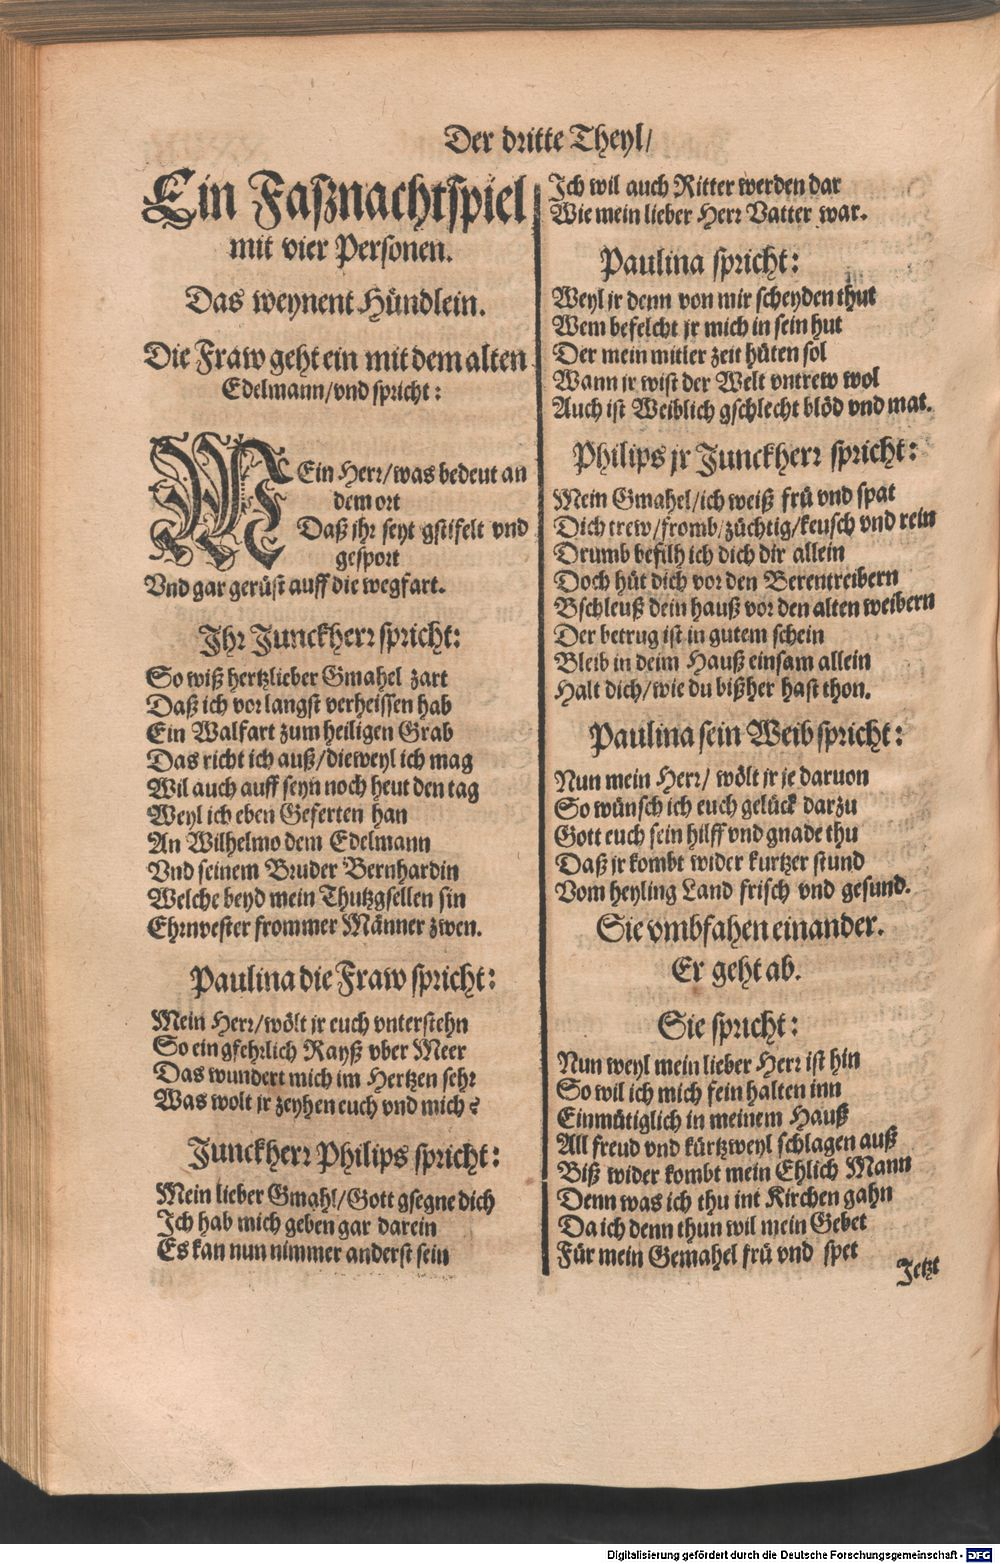 Der dritte Theyl/
Ein Faßnachtspiel
mit vier Personen.
Das weynent Hündlein.
Die Fraw geht ein mit dem alten
Edelmann/vnd spricht:
MEin Herr/was bedeut an
dem ort
Daß ihr seyt gstifelt vnd
gesport
Vnd gar gerüst auff die wegfart.
Ihr Junckherr spricht:
So wiß hertzlieber Gmahel zart
Daß ich vor langst verheissen hab
Ein Walfart zum heiligen Grab
Das richt ich auß/dieweyl ich mag
Wil auch auff seyn noch heut den tag
Weyl ich eben Geferten han
An Wilhelmo dem Edelmann
Vnd seinem Bruder Bernhardin
Welche beyd mein Thutzgsellen sin
Ehrnvester frommer Männer zwen.
Paulina die Fraw spricht:
Mein Herr/wölt jr euch vnterstehn
So ein gfehrlich Rayß vber Meer
Das wundert mich im Hertzen sehr
Was wolt jr zeyhen euch vnd mich?
Junckherr Philips spricht:
Mein lieber Gmahl/Gott gsegne dich
Ich hab mich geben gar darein
Es kan nun nimmer anderst sein
Ich wil auch Ritter werden dar
Wie mein lieber Herr Vatter war.
Paulina spricht:
Weyl jr denn von mir scheyden thut
Wem befelcht jr mich in sein hut
Der mein mitler zeit hüten sol
Wann jr wist der Welt vntrew wol
Auch ist Weiblich gschlecht blöd vnd mat.
Philips jr Junckherr spricht:
Mein Gmahel/ich weiß frü vnd spat
Dich trew/fromb/züchtig/keusch vnd rein
Drumb befilh ich dich dir allein
Doch hüt dich vor den Berentreibern
Bschleuß dein hauß vor den alten weibern
Der betrug ist in gutem schein
Bleib in deim Hauß einsam allein
Halt dich/wie du bißher hast thon.
Paulina sein Weib spricht:
Nun mein Herr/ wölt jr je daruon
So wünsch ich euch gelück darzu
Gott euch sein hilff vnd gnade thu
Daß jr kombt wider kurtzer stund
Vom heyling Land frisch vnd gesund.
Sie vmbfahen einander.
Er geht ab.
Sie spricht:
Nun weyl mein lieber Herr ist hin
So wil ich mich fein halten inn
Einmütiglich in meinem Hauß
All freud vnd kürtzweyl schlagen auß
Biß wider kombt mein Ehlich Mann
Denn was ich thu int Kirchen gahn
Da ich denn thun wil mein Gebet
Für mein Gemahel frü vnd spet
Jetzt
Digitalisierung gefördert durch die Deutsche Forschungsgemeinschaft - DFG